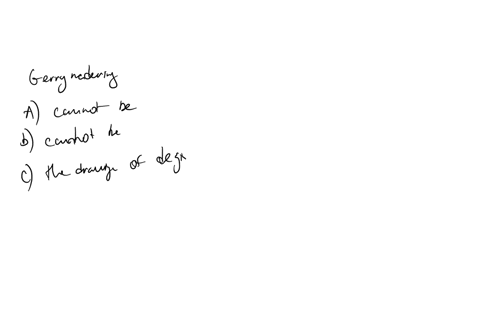 Gerrymedering
A) cannot be
b) cannot be
c) the drauge of degr